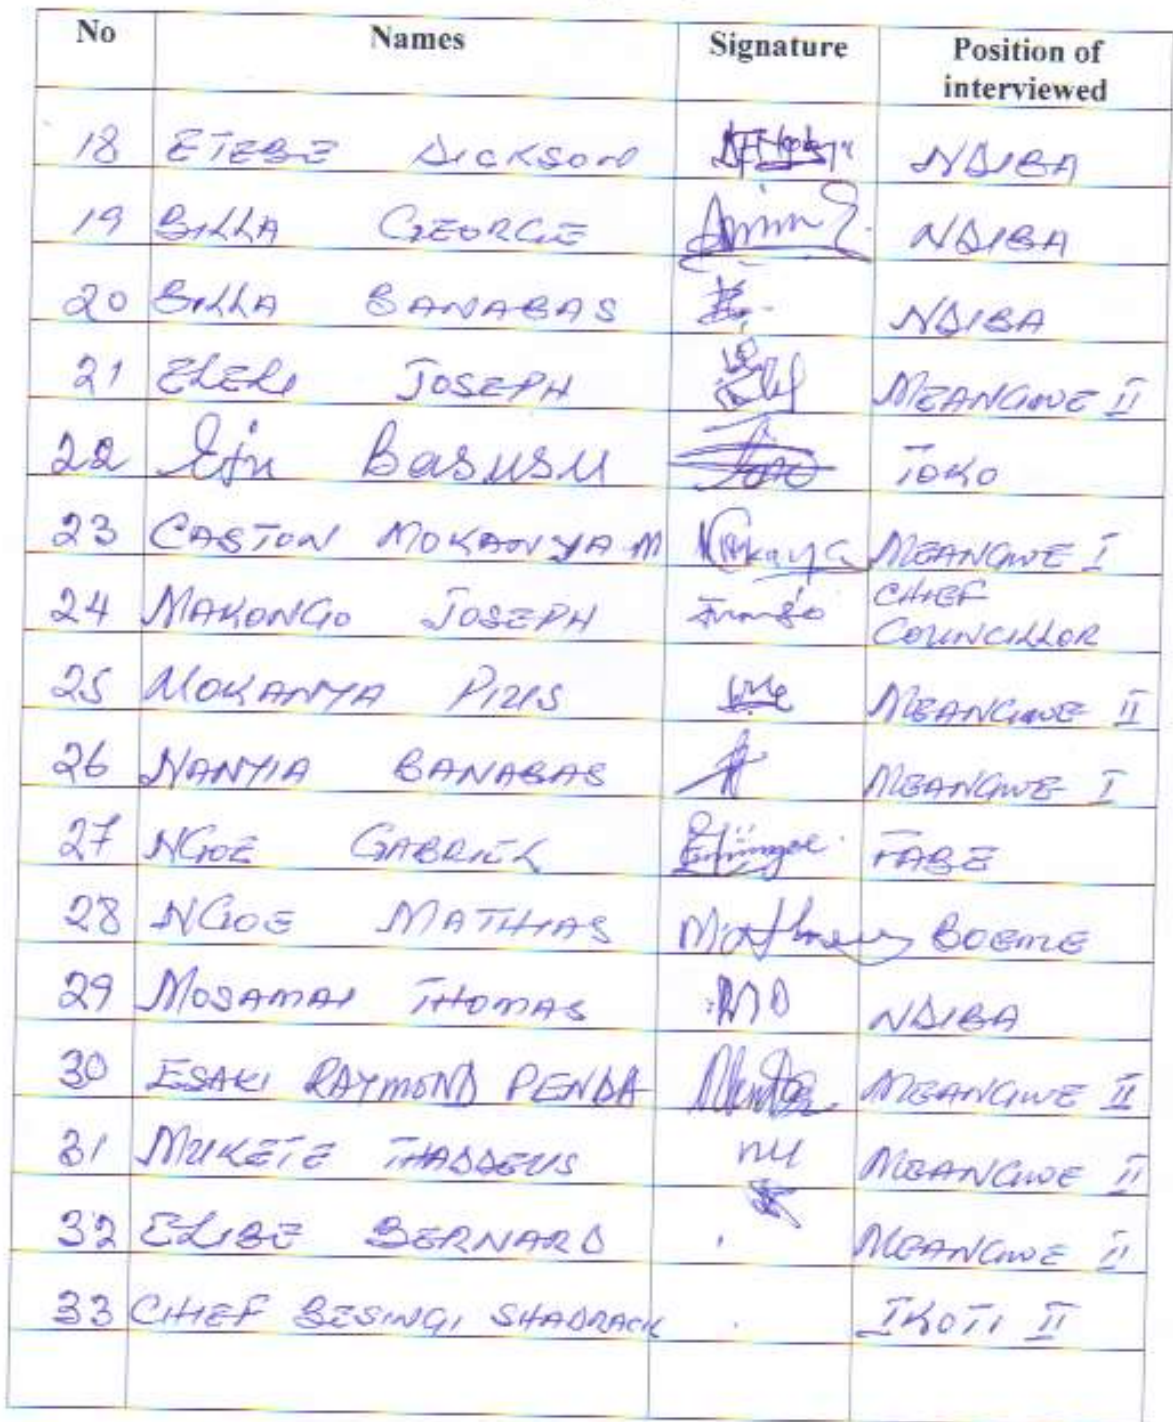 No Names Signature Position of interviewed
18 ETEBE DICKSON NDIBA
19 BILLA GEORGE NDIBA
20 BILLA BANABAS NDIBA
21 ELELI JOSEPH MBANGWE II
22 Basusu TOKO
23 CASTON MOKANYA M MBANGWE I
24 MAKONGO JOSEPH CHIEF COUNCILLOR
25 MOKANYA PIUS MBANGWE II
26 NANYIA BANABAS MBANGWE I
27 NGOE GABRIEL FABE
28 NGOE MATHIAS BOEME
29 MOSAMAI THOMAS NDIBA
30 ESAKI RAYMOND PENDA MBANGWE II
31 MUKETE THADDEUS MBANGWE II
32 ELIBE BERNARD MBANGWE II
33 CHIEF BESINGI SHADRACK IKOTI II